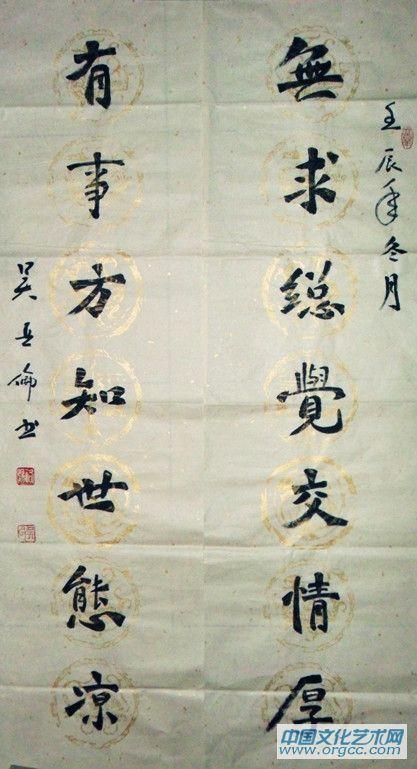 壬辰年冬月
無求總覺交情厚
有事方知世態凉
吴岳倫书
中国文化艺术网
www.orgcc.com